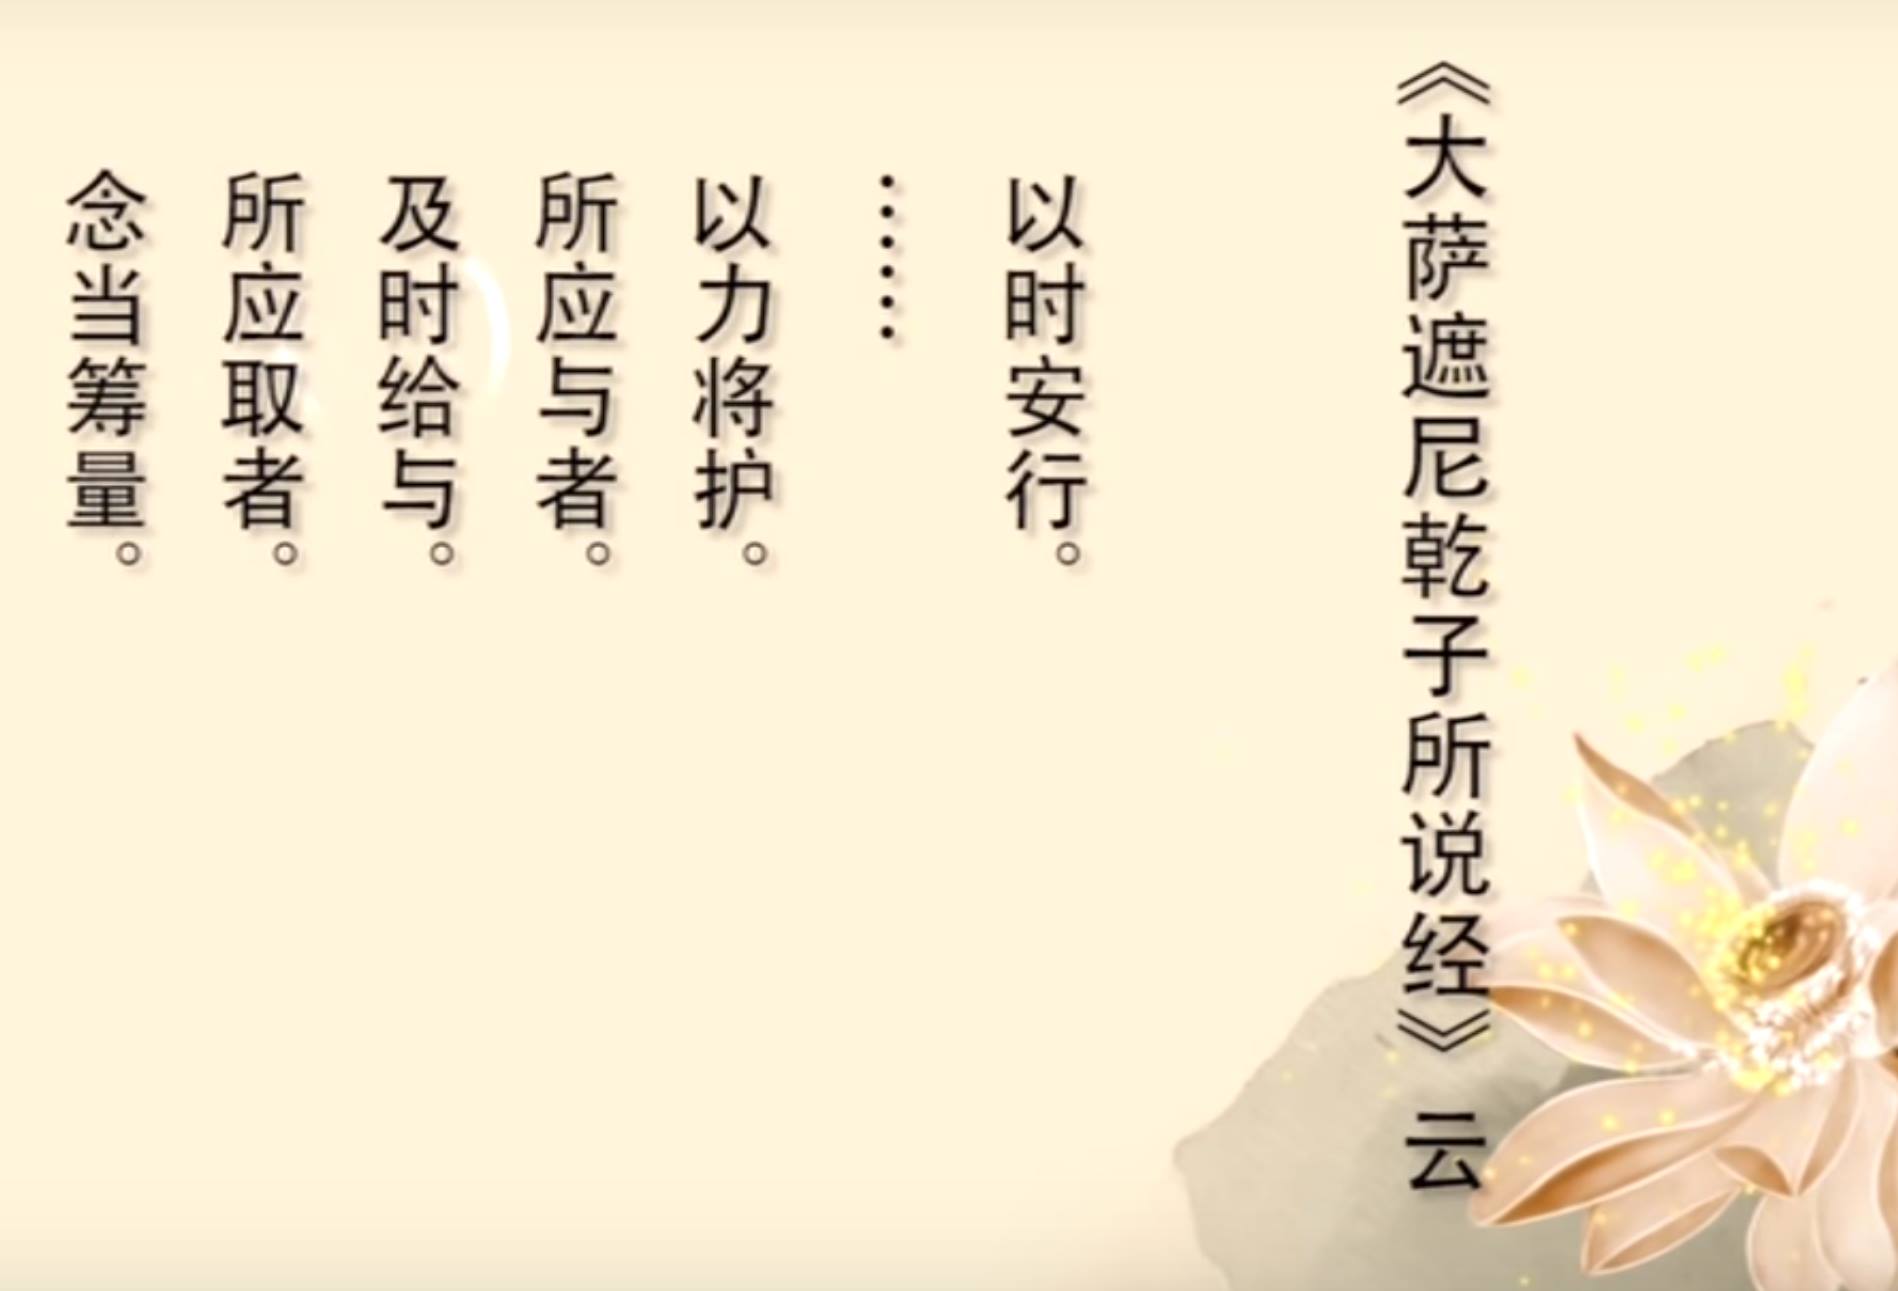 《大萨遮尼乾子所说经》云
以时安行。
……
以力将护。
所应与者。
及时给与。
所应取者。
念当筹量。